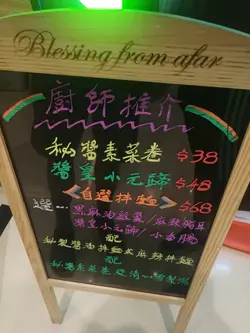 Blessing from afar
廚師推介
秘醬素菜卷 $38
醬皇小元蹄 $48
自選拌麵 $68
選
黑麻油紅薑/麻辣豬耳
醬皇小元蹄/小香腸
配
秘製醬油拌麵或麻辣拌麵
配
秘醬素菜卷